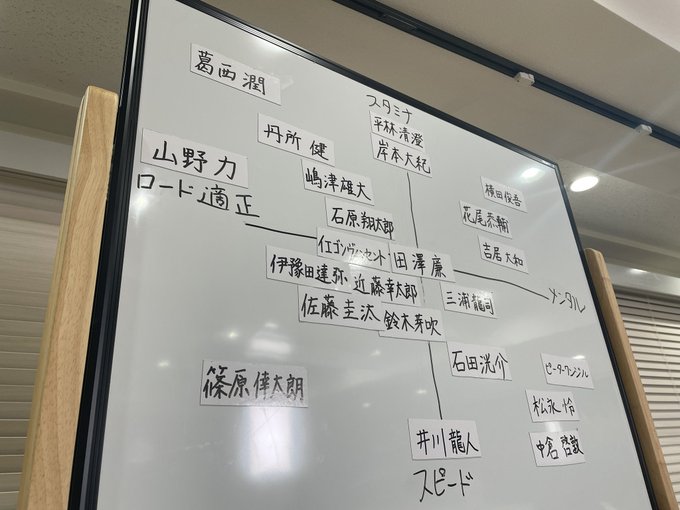 葛西潤
スタミナ
平林清澄
岸本大紀
丹所健
山野力
ロード適正
嶋津雄大
横田俊吾
石原翔太郎
花尾恭輔
イエゴンヴィンセント
田澤廉
吉居大和
伊豫田達弥
近藤幸太郎
メンタル
佐藤圭汰
鈴木芽吹
三浦龍司
石田洸介
ピーターワンジル
篠原倖太朗
松永怜
井川龍人
中倉啓敦
スピード